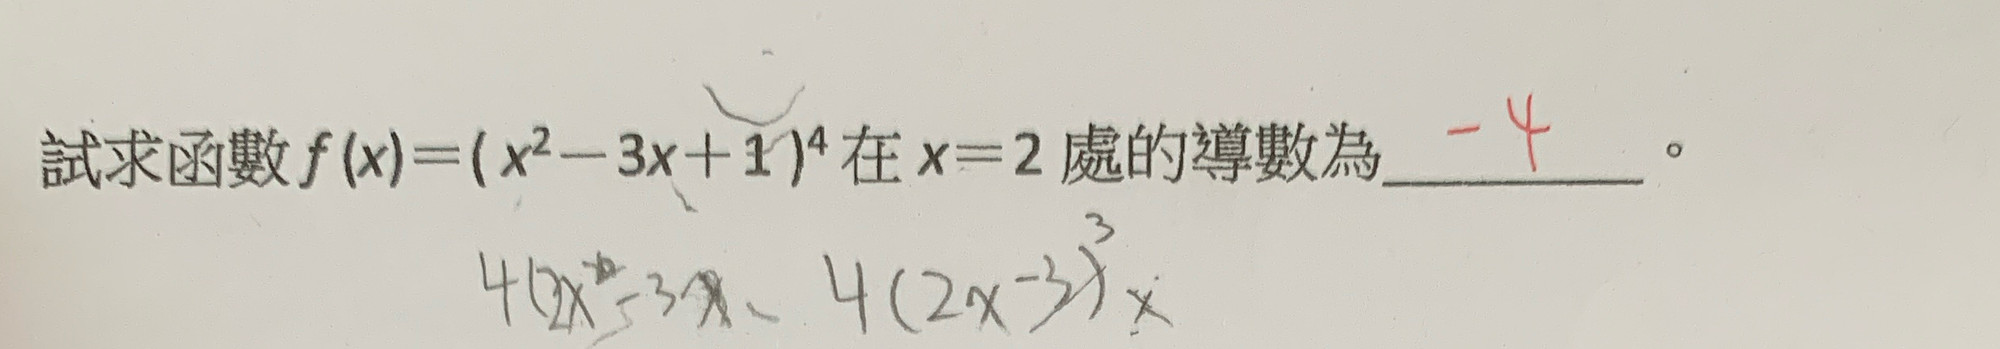 試求函數 f (x)=( x²－3x＋1 )⁴ 在 x=2 處的導數為 -4 。
4(2x -3 4(2x-3)³x